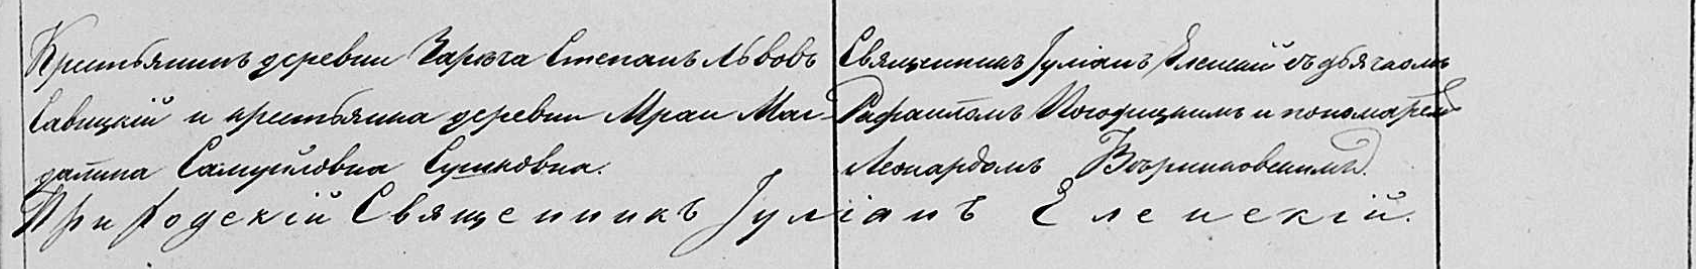 Крестьянинъ деревни Заріога Степанъ Львовъ
Савицкій и крестьянка деревни Мраи Маг-
далина Самуйловна Сушковна.
Священникъ Іуліанъ Еленскій съ дьячкомъ
Рафаиломъ Погодицкимъ и пономаремъ
Леонардомъ
Приходскій Священникъ Іуліанъ Еленскій.